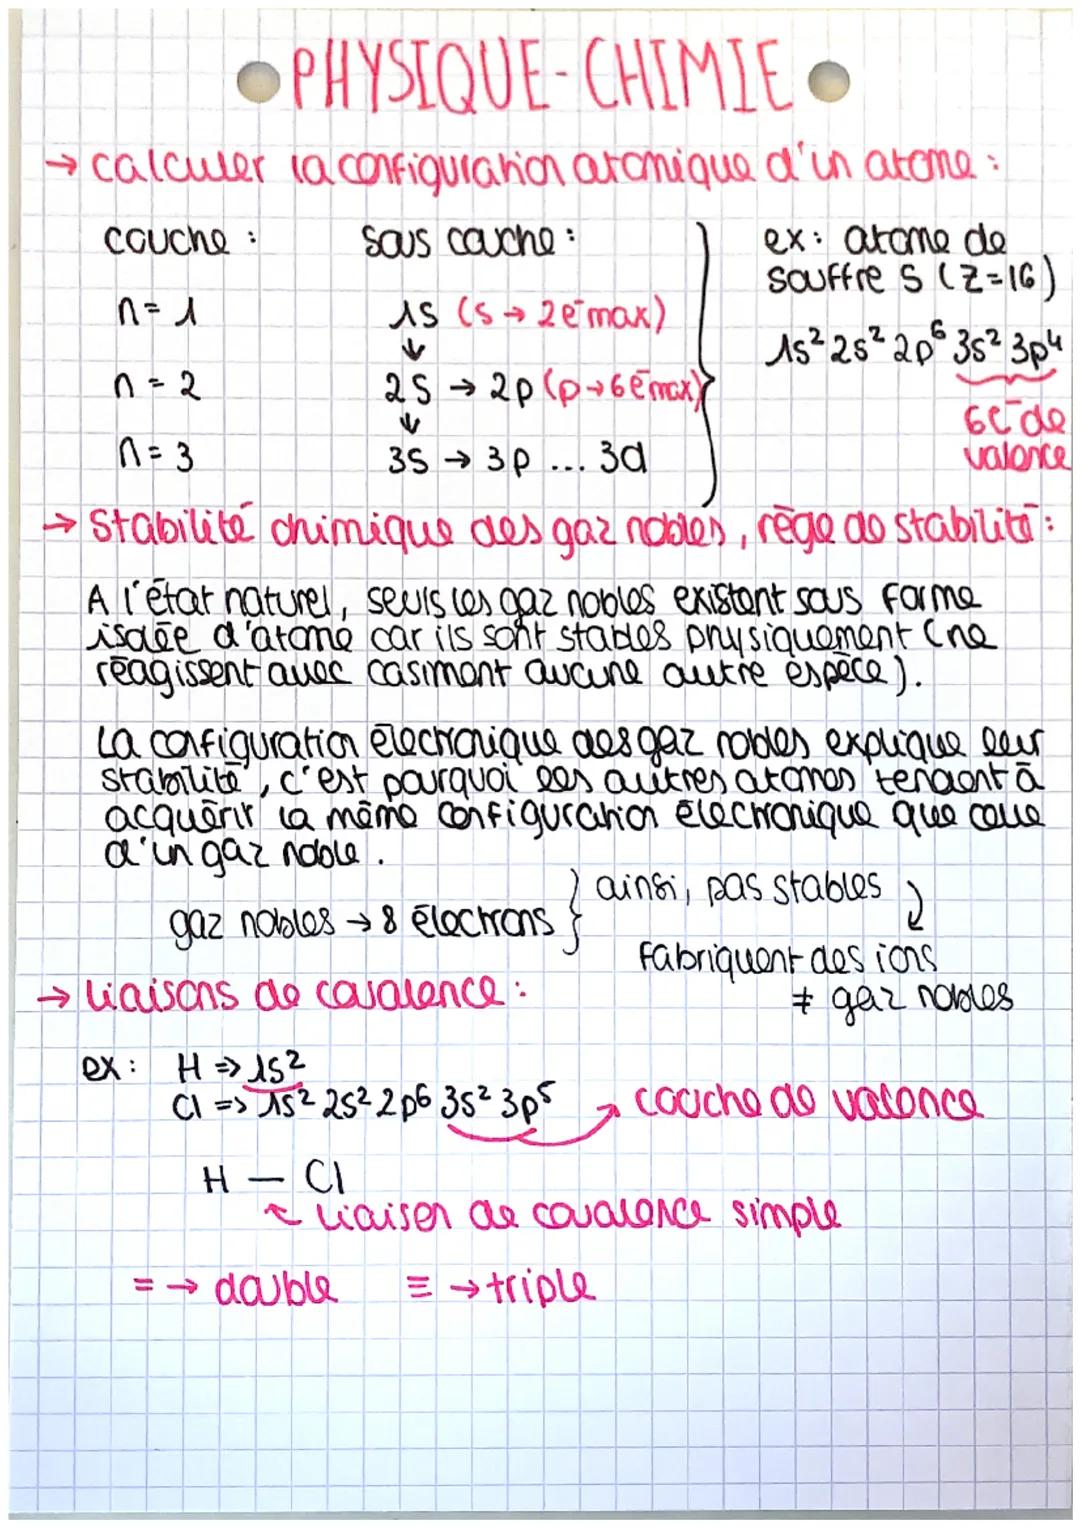 PHYSIQUE-CHIMIE
→ calculer la configuration atomique d'un atome :
couche :
sous couche :
n = 1
1s (s → 2e⁻ max)
↓
n = 2
2s → 2p (p → 6e⁻ max)
↓
n = 3
3s → 3p ... 3d
ex : atome de
souffre S (Z=16)
1s² 2s² 2p⁶ 3s² 3p⁴
6e⁻ de
valence
→ Stabilité chimique des gaz nobles, rège de stabilité :
A l'état naturel, seuls les gaz nobles existent sous forme
isolée d'atome car ils sont stables physiquement (ne
réagissent avec casiment aucune autre espèce).
La configuration électronique des gaz nobles explique leur
stabilité, c'est pourquoi les autres atomes tendent à
acquérir la même configuration électronique que celle
d'un gaz noble.
gaz nobles → 8 électrons } ainsi, pas stables
fabriquent des ions
≠ gaz nobles
→ liaisons de covalence :
ex : H => 1s²
Cl => 1s² 2s² 2p⁶ 3s² 3p⁵ → couche de valence
H — Cl
liaison de covalence simple
= → double ≡ → triple